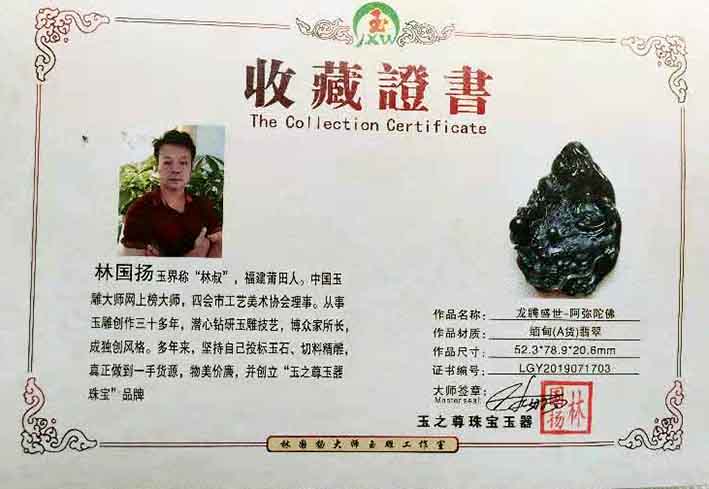 玉
JXW
收藏證書
The Collection Certificate
林国扬玉界称“林叔”，福建莆田人。中国玉
雕大师网上榜大师，四会市工艺美术协会理事。从事
玉雕创作三十多年，潜心钻研玉雕技艺，博众家所长，
成独创风格。多年来，坚持自己投标玉石、切料精雕，
真正做到一手货源，物美价廉，并创立“玉之尊玉器
珠宝”品牌
作品名称：龙腾盛世-阿弥陀佛
作品材质：缅甸(A货)翡翠
作品尺寸：52.3*78.9*20.6mm
证书编号：LGY2019071703
大师签章：
Master seal:
林国扬
玉之尊珠宝玉器
林国扬大师玉雕工作室